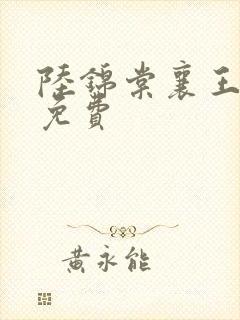 陸錦棠襄王
免費
黃永能